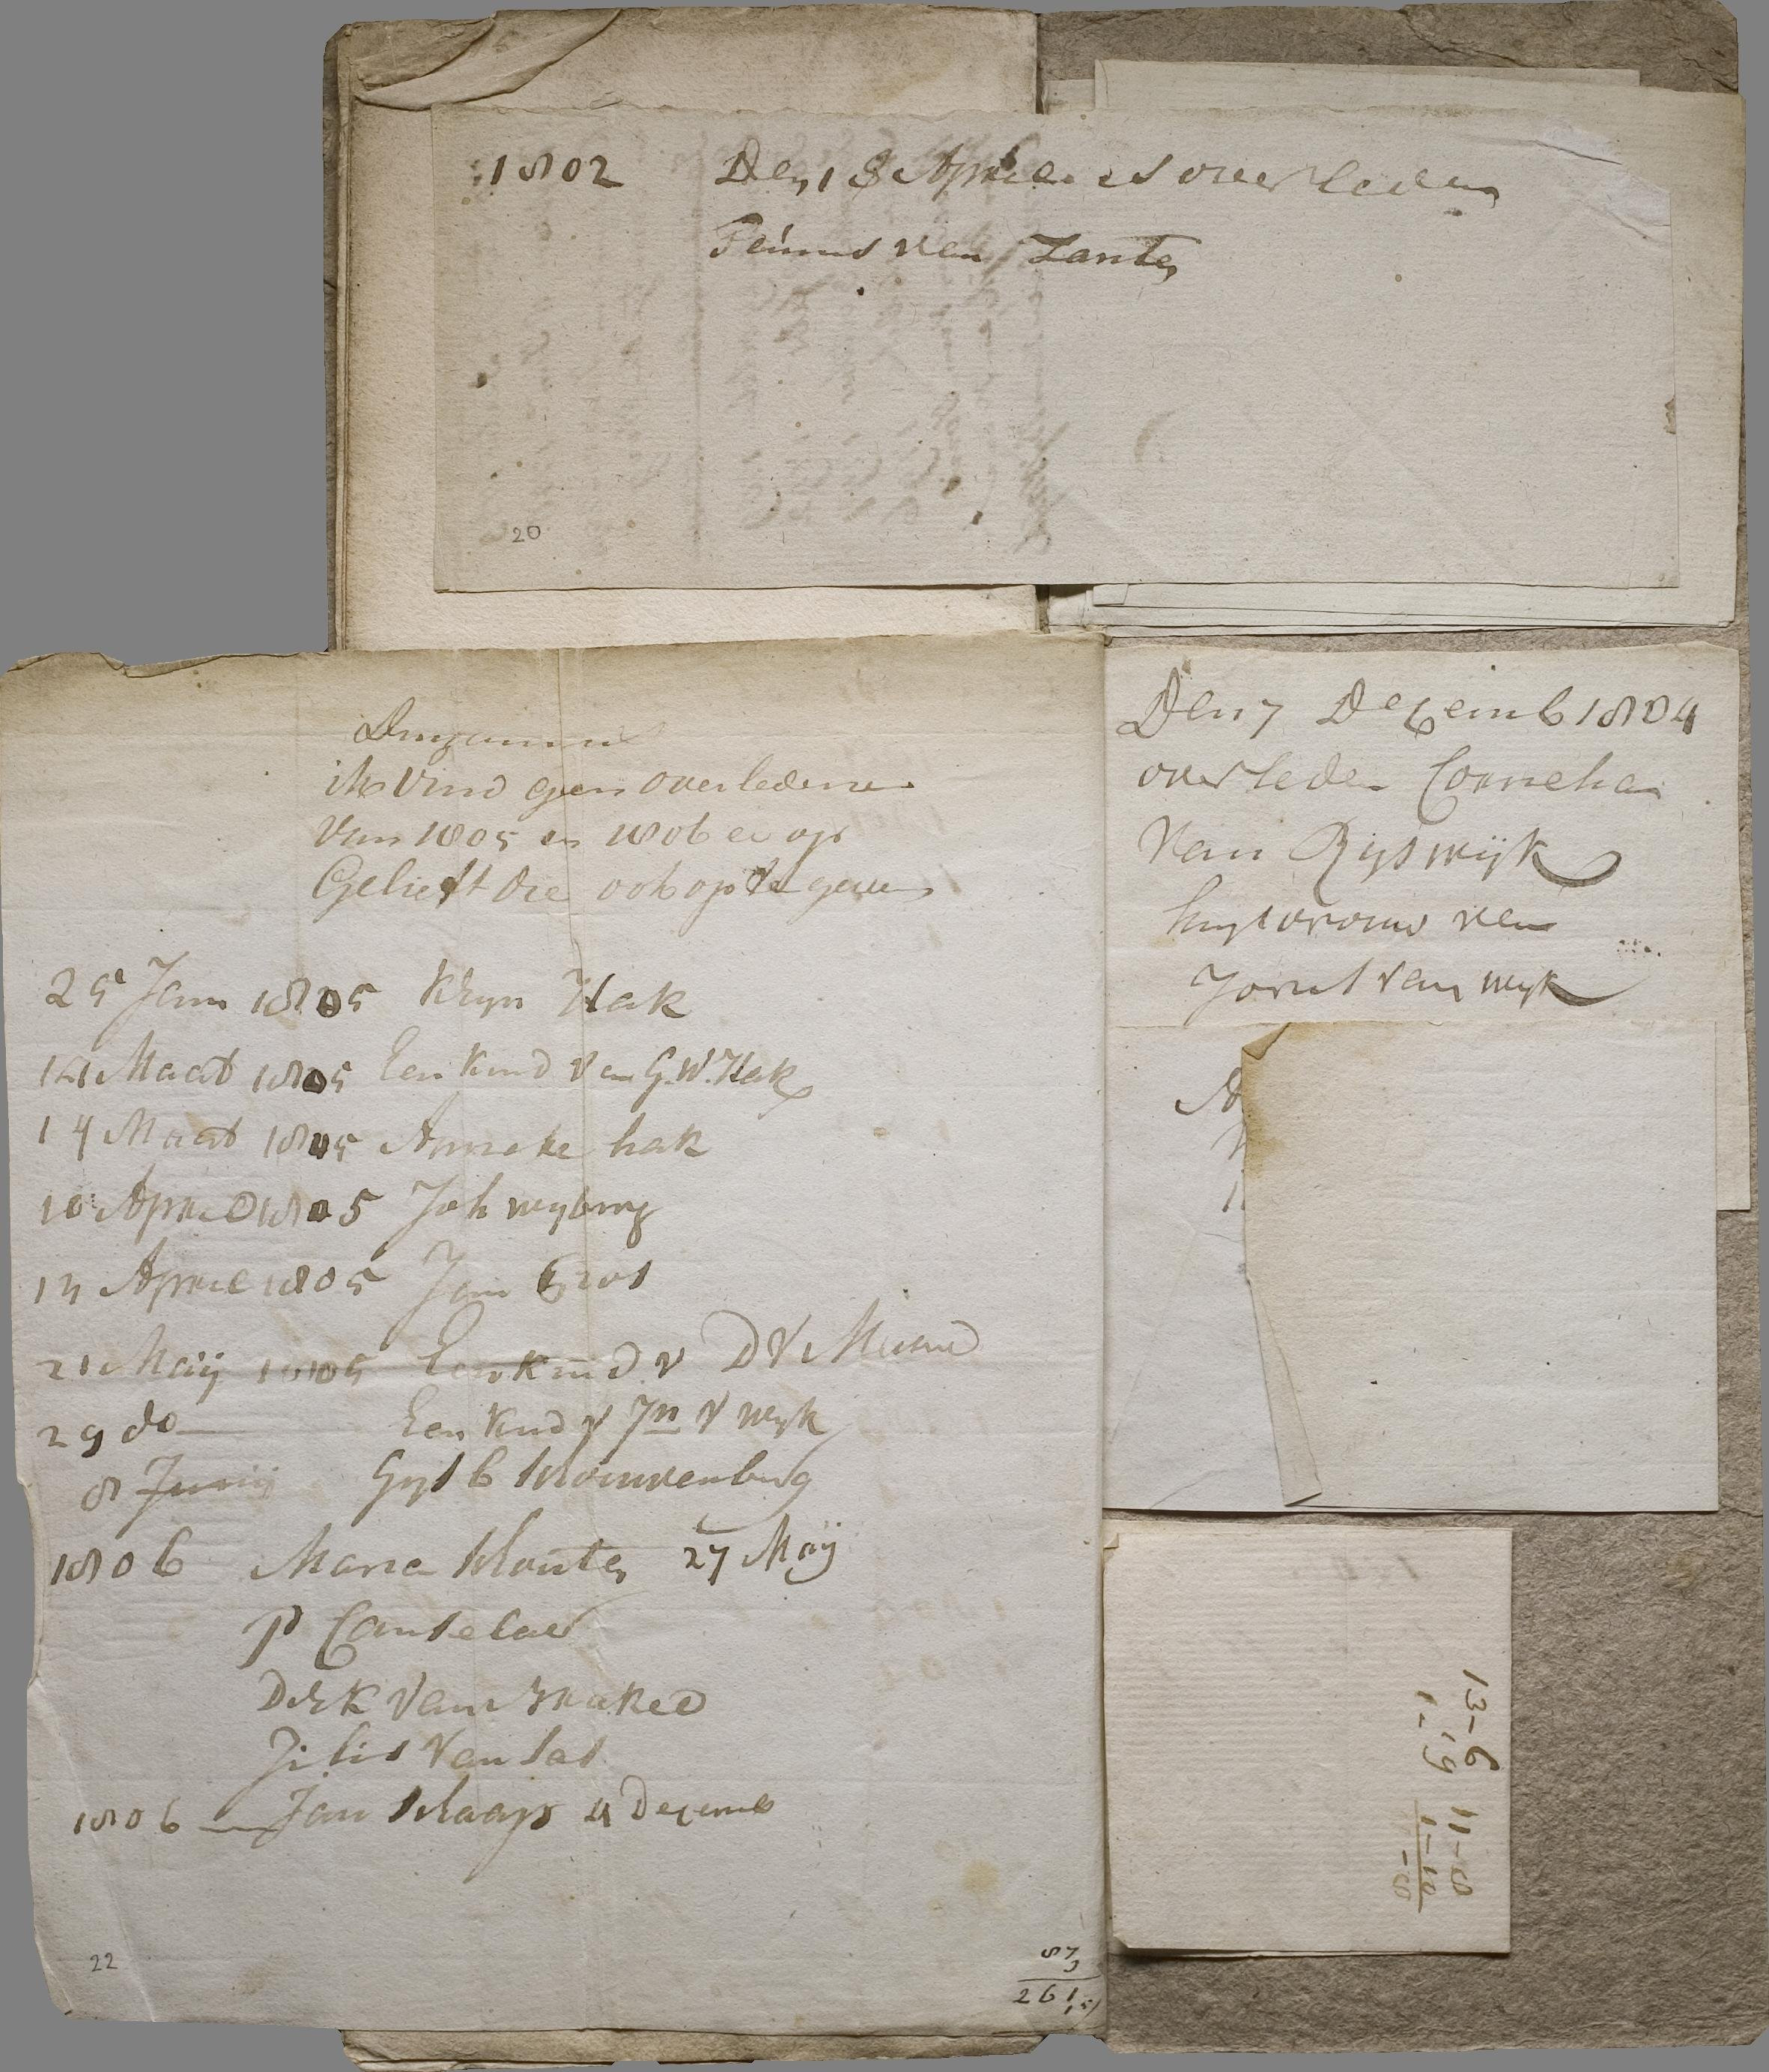 1802 Den 18 April is overleden
Teunis van Zanten
20
ik vind geen overledenen
van 1805 en 1806 er op
Gelieft die ook op te geven
25 Jann 1805 Kryn Hak
12 Maart 1805 Een kind van G.W. Hak
14 Maart 1805 Anneke hak
10 April 1805 Joh wyburg
13 April 1805 Jan Gros
21 Maij 1805 Een kind v D V
29 do Een kind v Jn v wyk
8 Junij Gysb Kouwenburg
1806 Maria Wouters 27 Maij
P Canselaer
Dirk van
Jilis van Sas
1806 Jan Klaays 4 Decemb
22
87
3
261
Den 7 Decemb 1804
overleden Cornelia
van Rijswijk
huysvrouw van
Joost van wyk
13-6 11-8
1-19 1-10
-8